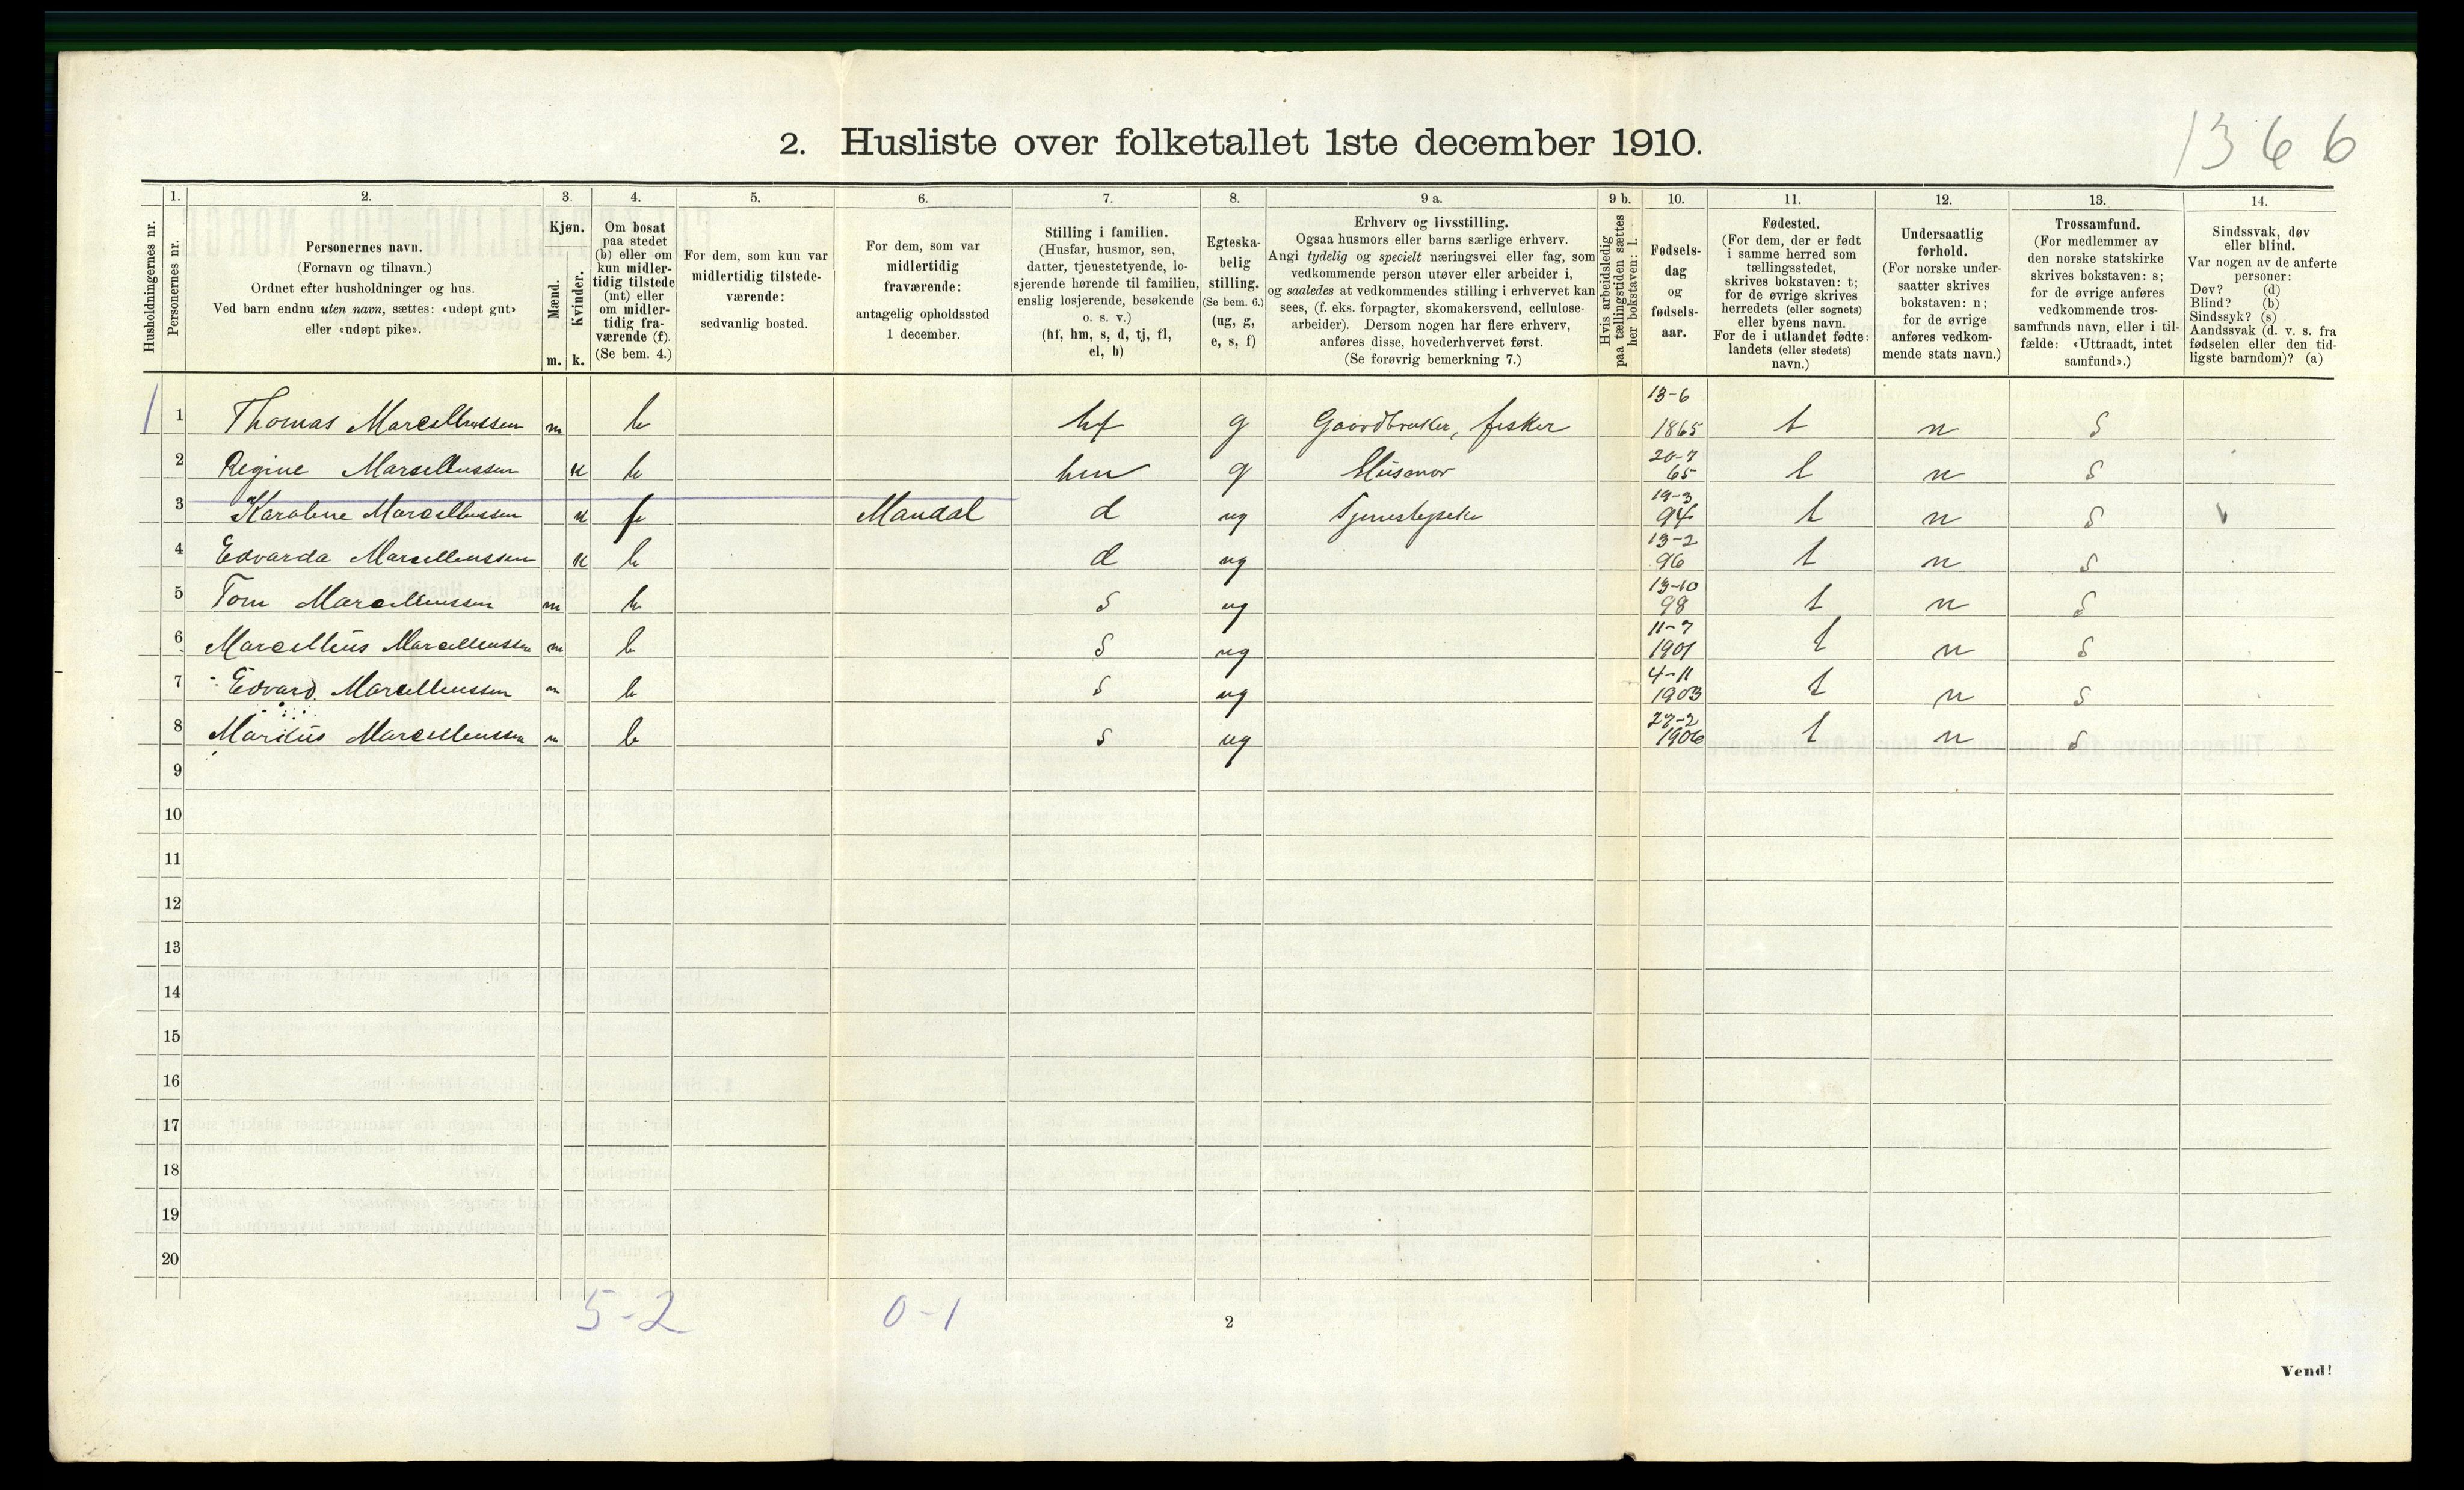 1366
2. Husliste over folketallet 1ste december 1910.
Husholdningernes nr.
1.
Personernes nr.
2.
Personernes navn.
(Fornavn og tilnavn.)
Ordnet efter husholdninger og hus.
Ved barn endnu uten navn, sættes: «udøpt gut»
eller «udøpt pike».
3.
Kjøn.
Mænd.
Kvinder.
m. k.
4.
Om bosat
paa stedet
(b) eller om
kun midler-
tidig tilstede
(mt) eller
om midler-
tidig fra-
værende (f).
(Se bem. 4.)
5.
For dem, som kun var
midlertidig tilstede-
værende:
sedvanlig bosted.
6.
For dem, som var
midlertidig
fraværende:
antagelig opholdssted
1 december.
7.
Stilling i familien.
(Husfar, husmor, søn,
datter, tjenestetyende, lo-
sjerende hørende til familien,
enslig losjerende, besøkende
o. s. v.)
(hf, hm, s, d, tj, fl,
el, b)
8.
Egteska-
belig
stilling.
(Se bem. 6.)
(ug, g,
e, s, f)
9 a.
Erhverv og livsstilling.
Ogsaa husmors eller barns særlige erhverv.
Angi tydelig og specielt næringsvei eller fag, som
vedkommende person utøver eller arbeider i,
og saaledes at vedkommendes stilling i erhvervet kan
sees, (f. eks. forpagter, skomakersvend, cellulose-
arbeider). Dersom nogen har flere erhverv,
anføres disse, hovederhvervet først.
(Se forøvrig bemerkning 7.)
9 b.
Hvis arbeidsledig
paa tællingstiden sættes
her bokstaven: l.
10.
Fødsels-
dag
og
fødsels-
aar.
11.
Fødested.
(For dem, der er født
i samme herred som
tællingsstedet,
skrives bokstaven: t;
for de øvrige skrives
herredets (eller sognets)
eller byens navn.
For de i utlandet fødte:
landets (eller stedets)
navn.)
12.
Undersaatlig
forhold.
(For norske under-
saatter skrives
bokstaven: n;
for de øvrige
anføres vedkom-
mende stats navn.)
13.
Trossamfund.
(For medlemmer av
den norske statskirke
skrives bokstaven: s;
for de øvrige anføres
vedkommende tros-
samfunds navn, eller i til-
fælde: «Uttraadt, intet
samfund».)
14.
Sindssvak, døv
eller blind.
Var nogen av de anførte
personer:
Døv? (d)
Blind? (b)
Sindssyk? (s)
Aandssvak (d. v. s. fra
fødselen eller den tid-
ligste barndom)? (a)
1 1 Thomas Marcellussen m b hf g Gaardbruker, fisker 13-6 1865 t n s
2 Regine Marsellussen k b hm g Husmor 20-7 65 t n s
3 Karoline Marcellussen k f Mandal d ug Tjenestepike 19-3 94 t n s
4 Edvarda Marcellussen k b d ug 13-2 96 t n s
5 Tom Marcellussen m b s ug 13-10 98 t n s
6 Marcellius Marcellussen m b s ug 11-7 1901 t n s
7 Edvard Marcellussen m b s ug 4-11 1903 t n s
8 Marius Marcellussen m b s ug 27-2 1906 t n s
9
10
11
12
13
14
15
16
17
18
19
20
5-2 0-1
2
Vend!